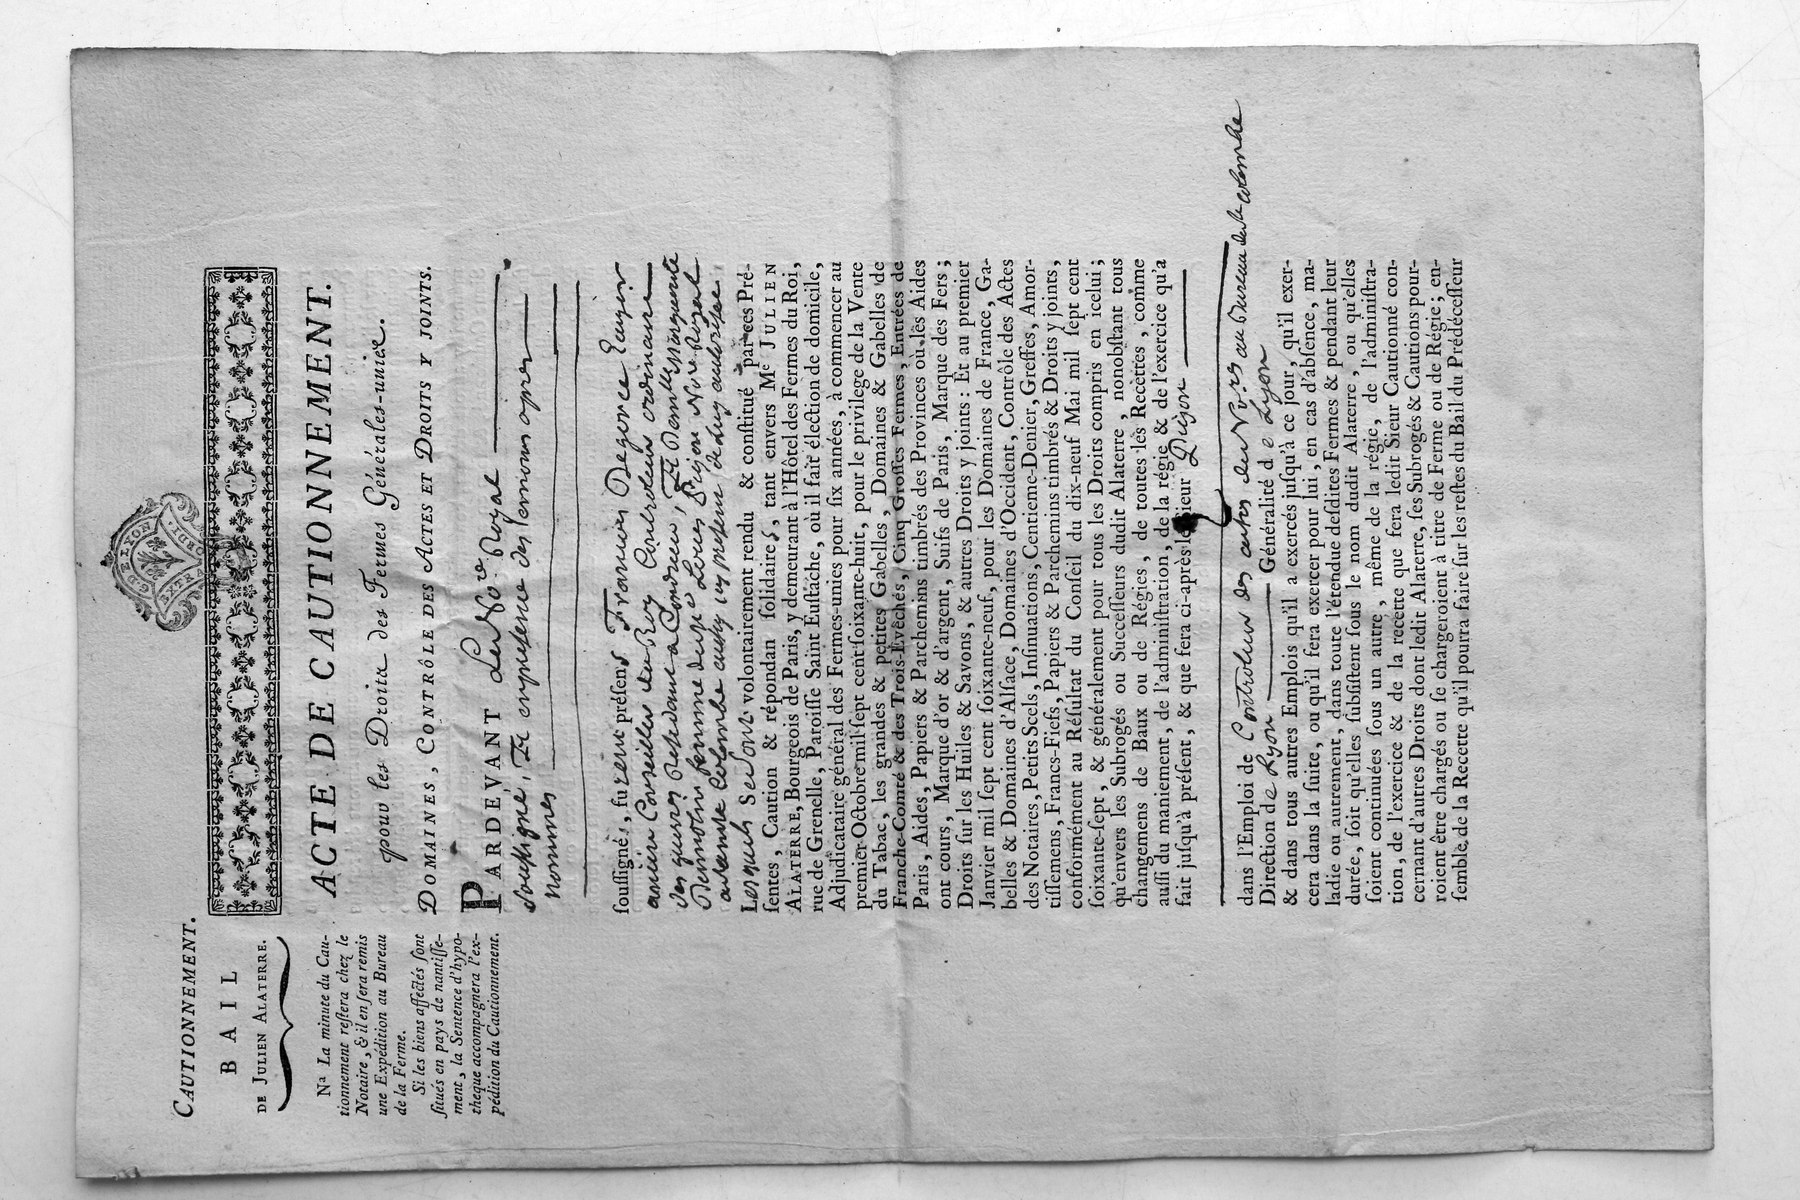 CAUTIONNEMENT.
BAIL
DE JULIEN ALATERRE.
Nᵃ La minute du Cau-
tionnement reſtera chez le
Notaire, & il en ſera remis
une Expédition au Bureau
de la Ferme.
Si les biens affectés ſont
ſitués en pays de nantiſſe-
ment, la Sentence d'hypo-
theque accompagnera l'ex-
pédition du Cautionnement.
G. DE LYON
EXTRAORDI.
ACTE DE CAUTIONNEMENT.
pour les Droits des Fermes Générales-unies.
DOMAINES, CONTRÔLE DES ACTES ET DROITS Y JOINTS.
PARDEVANT Le No.re Royal
soussigné, Et en presence des temoins apres
nommés
ſouſſignés, furent préſens François Degorce Ecuyer
ancien Conseiller du Roy Controlleur ordinaire
des guerres Residant a Condrieu, Et
femme Louis Nore Royal
autorisée
Lesquels Se Sont volontairement rendu & conſtitué par ces Pré-
ſentes, Caution & répondan ſolidaires, tant envers Mᵉ JULIEN
ALATERRE, Bourgeois de Paris, y demeurant à l'Hôtel des Fermes du Roi,
rue de Grenelle, Paroiſſe Saint Euſtache, où il fait élection de domicile,
Adjudicataire général des Fermes-unies pour ſix années, à commencer au
premier Octobre mil ſept cent ſoixante-huit, pour le privilege de la Vente
du Tabac, les grandes & petites Gabelles, Domaines & Gabelles de
Franche-Comté & des Trois-Evêchés, Cinq Groſſes Fermes, Entrées de
Paris, Aides, Papiers & Parchemins timbrés des Provinces où les Aides
ont cours, Marque d'or & d'argent, Suifs de Paris, Marque des Fers;
Droits ſur les Huiles & Savons, & autres Droits y joints: Et au premier
Janvier mil ſept cent ſoixante-neuf, pour les Domaines de France, Ga-
belles & Domaines d'Alſace, Domaines d'Occident, Contrôle des Actes
des Notaires, Petits Scels, Inſinuations, Centieme-Denier, Greffes, Amor-
tiſſemens, Francs-Fiefs, Papiers & Parchemins timbrés & Droits y joints,
conformément au Réſultat du Conſeil du dix-neuf Mai mil ſept cent
ſoixante-ſept, & généralement pour tous les Droits compris en icelui;
qu'envers les Subrogés ou Succeſſeurs dudit Alaterre, nonobſtant tous
changemens de Baux ou de Régies, de toutes les Recettes, comme
auſſi du maniement, de l'adminiſtration, de la régie & de l'exercice qu'a
fait juſqu'à préſent, & que fera ci-après le ſieur Pigon
dans l'Emploi de Controleur des actes des No.res au Bureau de Ste colombe
Direction de Lyon Généralité de Lyon
& dans tous autres Emplois qu'il a exercés juſqu'à ce jour, qu'il exer-
cera dans la ſuite, ou qu'il fera exercer pour lui, en cas d'abſence, ma-
ladie ou autrement, dans toute l'étendue deſdites Fermes & pendant leur
durée, ſoit qu'elles ſubſiſtent ſous le nom dudit Alaterre, ou qu'elles
ſoient continuées ſous un autre, même de la régie, de l'adminiſtra-
tion, de l'exercice & de la recette que fera ledit Sieur Cautionné con-
cernant d'autres Droits dont ledit Alaterre, ſes Subrogés & Cautions pour-
roient être chargés ou ſe chargeroient à titre de Ferme ou de Régie; en-
ſemble, de la Recette qu'il pourra faire ſur les reſtes du Bail du Prédéceſſeur